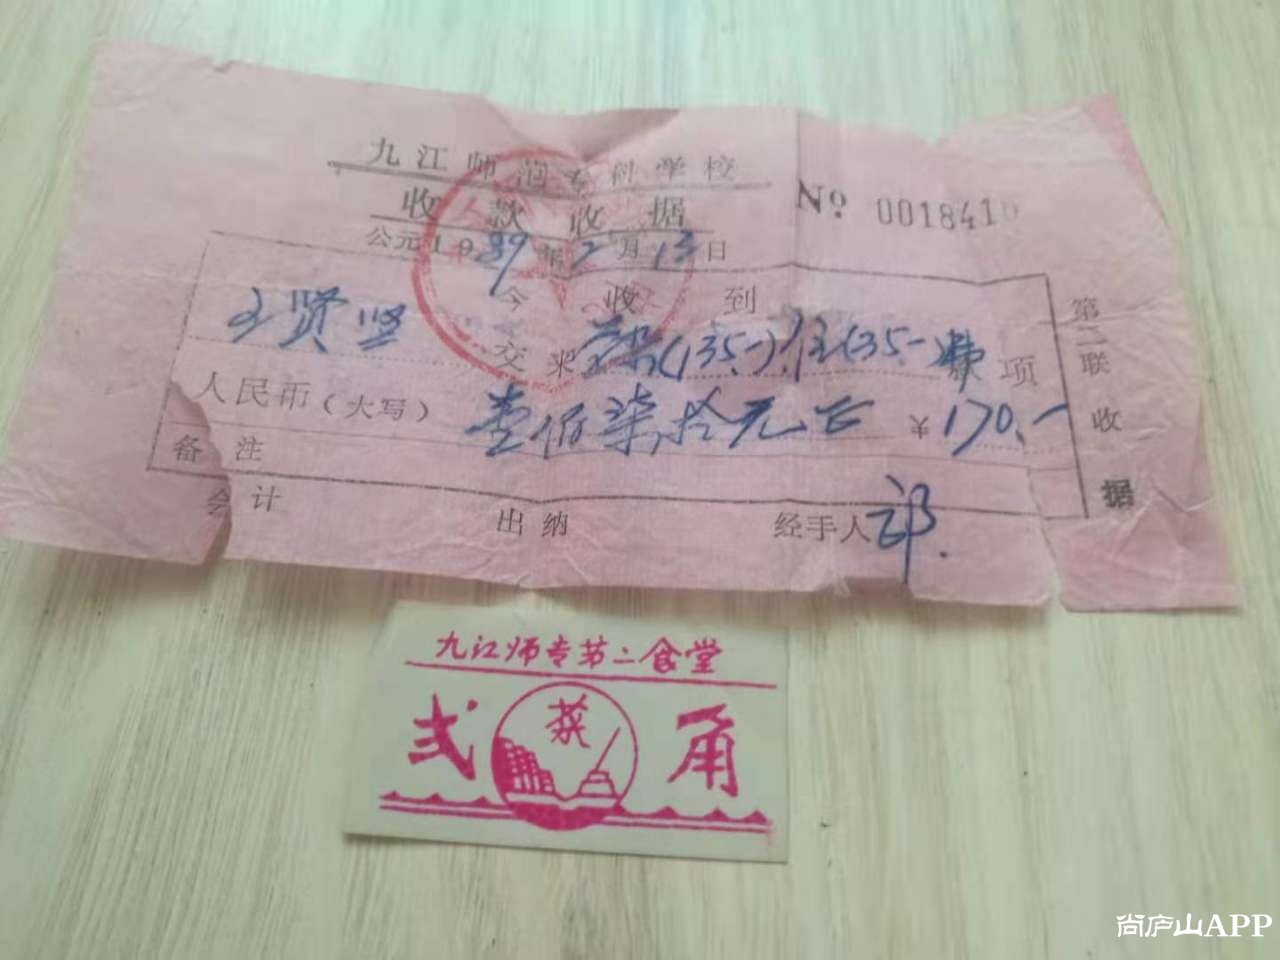 九江师范专科学校
收款收据
No. 001841
公元1989年2月13日
今收到
王贤坚
交来 (135.-). 住(35.-) 费 项
人民币(大写) 壹佰柒拾元正 ¥170.-
备注
会计 出纳 经手人 邵.
第二联 收据
九江师专第二食堂
弍 菜 角
尚庐山APP